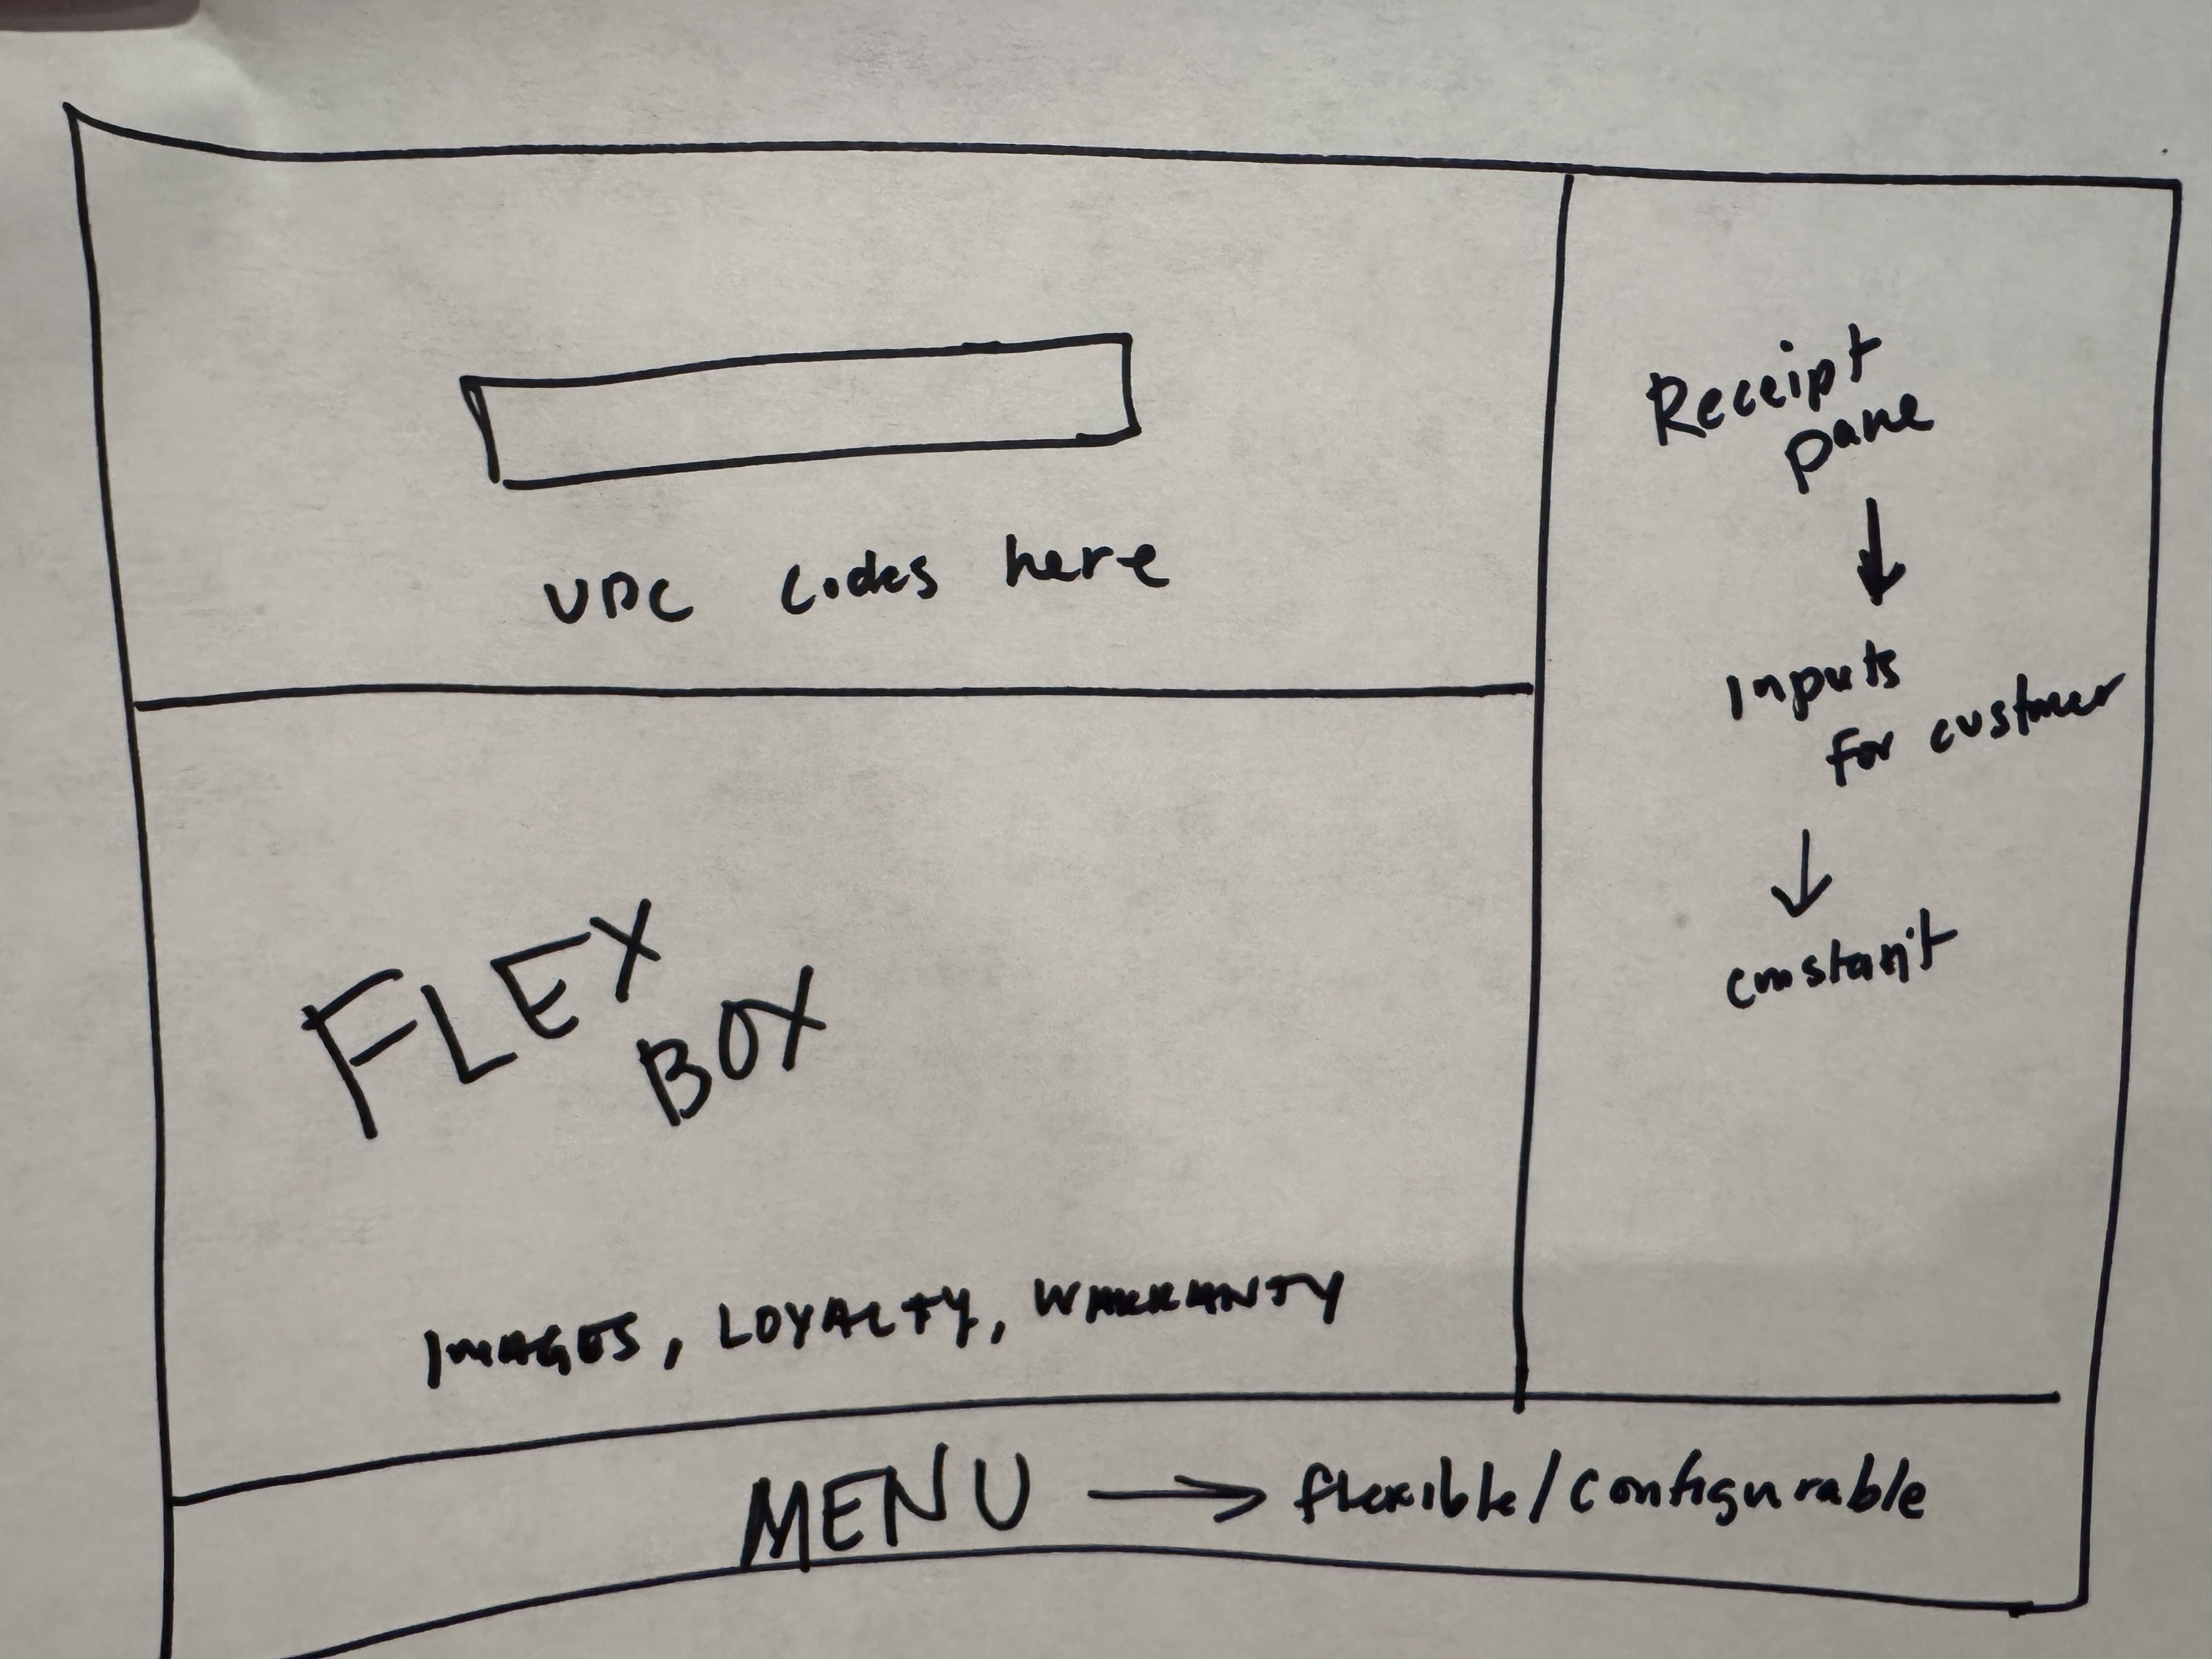 UPC codes here
Receipt
pane
Inputs
for customer
constant
FLEX
BOX
IMAGES, LOYALTY, WARRANTY
MENU → flexible/configurable